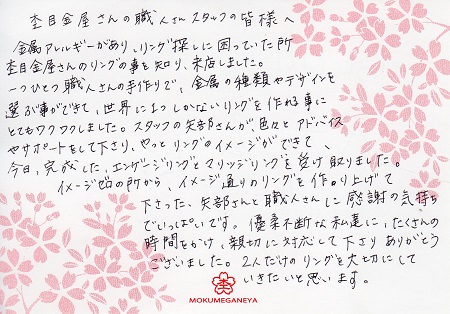 杢目金屋さんの職人さんスタッフの皆様へ
金属アレルギーがあり、リング探しに困っていた所
杢目金屋さんのリングの事を知り、来店しました。
一つひとつ職人さんの手作りで、金属の種類やデザインを
選ぶ事ができて、世界に1つしかないリングを作れる事に
とてもワクワクしました。スタッフの矢部さんが、色々とアドバイス
やサポートをして下さり、やっとリングのイメージができて、
今日、完成した、エンゲージリングとマリッジリングを受け取りました。
イメージ0の所から、イメージ通りのリングを作り上げて
下さった、矢部さんと職人さんに感謝の気持ち
でいっぱいです。優柔不断な私達に、たくさんの
時間をかけ、親切に対応して下さりありがとう
ございました。2人だけのリングを大切にして
いきたいと思います。
MOKUMEGANEYA